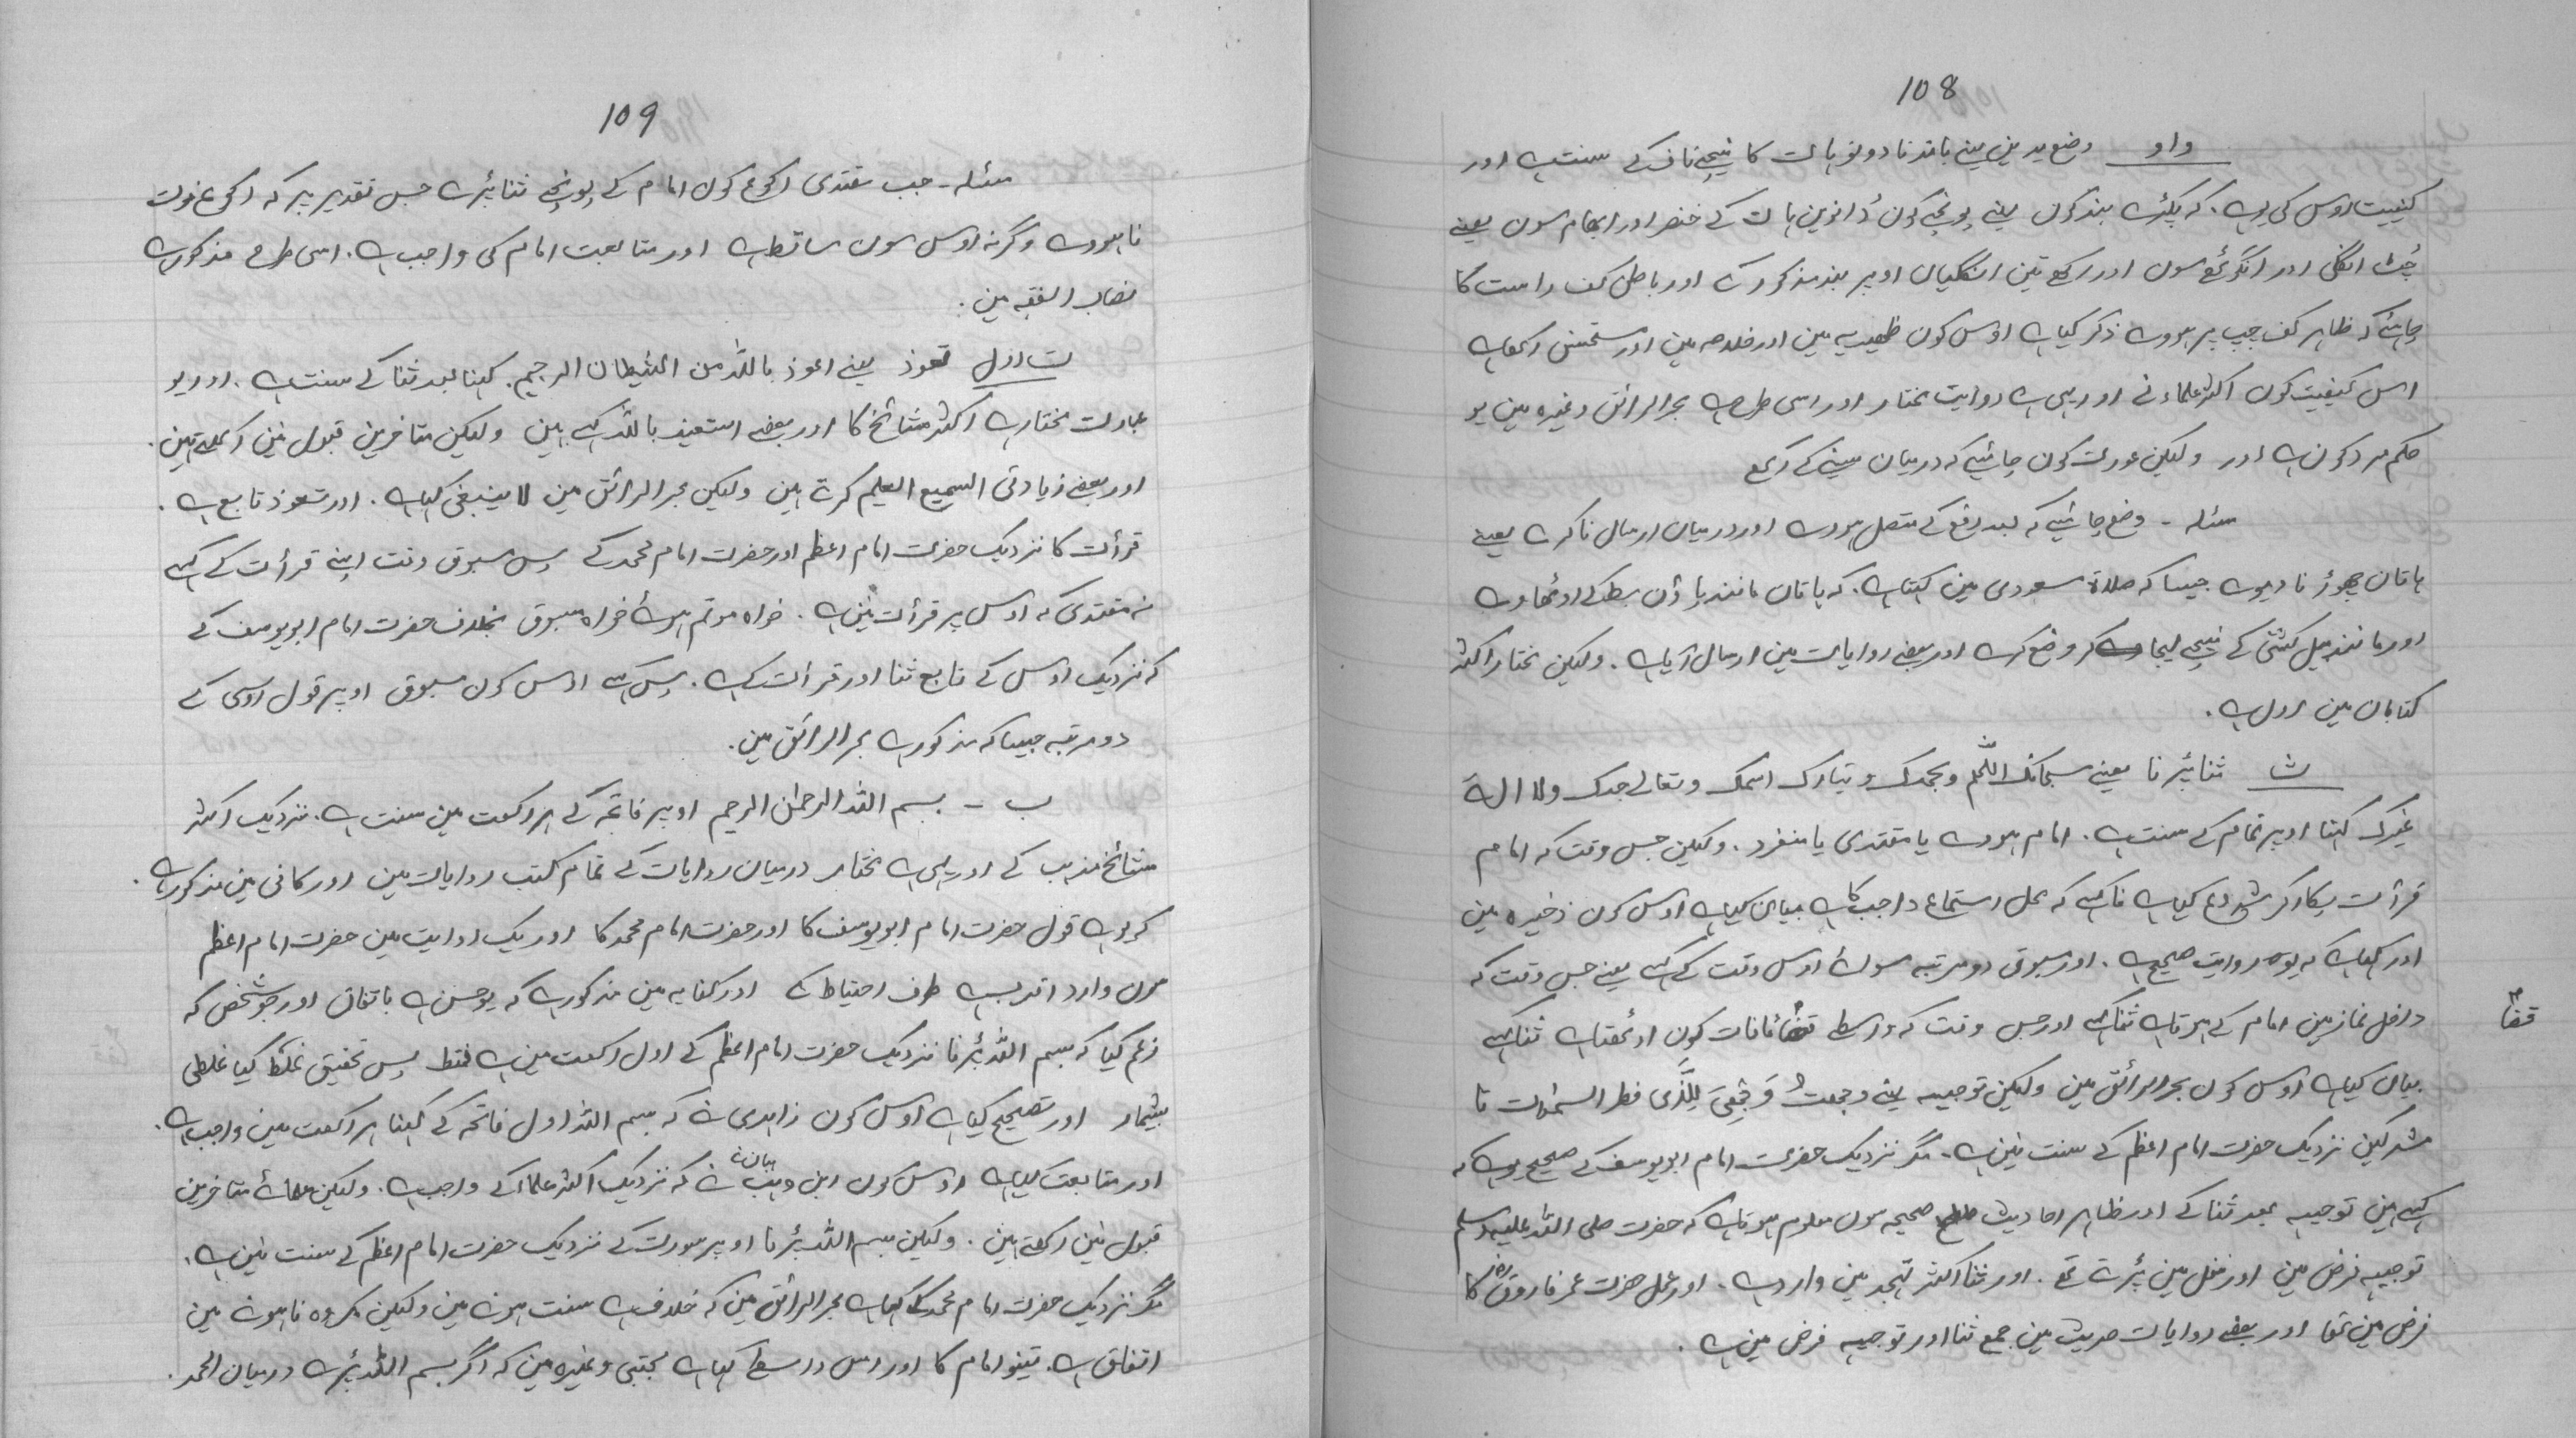 108
واو وضع یدین یعنے باندنا دونو ہات کا نیچے ناف کے سنت ہے اور
کیفیت اوس کی یو ہے. کہ پکڑے بند کون یعنے پونچے کون ڈانوین ہات کے خنصر اور ابہام سون یعنے
چٹ انگلی اور انگوٹھے سون اور رکھے تین انگلیان اوپر بند مذکور کے اور باطن کف راست کا
چاہئے کہ ظاہر کف چپ پر ہووے ذکر کیا ہے اوس کون ظہیریہ مین اور خلاصہ مین اور مستحسن رکھا ہے
اس کیفیت کون اکثر علماء نے اور یہی ہے روایت مختار اور اسی طرح ہے بحر الرائق وغیرہ مین یو
حکم مرد کون ہے اور ولیکن عورت کون چاہئیے کہ درمیان سینے کے رکھے
مسئلہ - وضع چاہئیے کہ بعد رفع کے متصل ہووے اور درمیان ارسال نا کرے یعنے
ہاتان چھوڑ نا دیوے جیسا کہ صلاۃ مسعودی مین کہتا ہے. کہ ہاتان مانند پاؤن بط کے اوٹھاوے
اور مانند بیل کشتی کے نیچے لیجا کر وضع کرے اور بعضے روایات مین ارسال آیا ہے. ولیکن مختار اکثر
کتابان مین اول ہے.
ث ثنا پڑنا یعنے سبحانک اللّٰھم وبحمدک وتبارک اسمک وتعالے جدک ولا الہ
غیرک کہنا اوپر تمام کے سنت ہے. امام ہووے یا مقتدی یا منفرد. ولیکن جس وقت کہ امام
قرأت پکار کر شروع کیا ہے نا کہے کہ محل استماع واجب کا ہے بیان کیا ہے اوس کون ذخیرہ مین
اور کہا ہے کہ یو ہے روایت صحیح ہے. اور مسبوق دو مرتبہ سوائے اوس وقت کے کہے یعنے جس وقت کہ
داخل نماز مین امام کے ہوتا ہے ثنا کہے اور جس وقت کہ واسطے قضا مافات کون اوٹھتا ہے ثنا کہے
قضا
بیان کیا ہے اوس کون بحر الرائق مین ولیکن توجیہہ یعنے وجھتُ وَجھِیَ لِلَّذی فطر السمٰوات تا
مشرکین نزدیک حضرت امام اعظم کے سنت نین ہے. مگر نزدیک حضرت امام ابویوسف کے صحیح یو ہے کہ
کہے مین توجیہہ بعد ثنا کے اور ظاہر احادیث صحیحہ سون معلوم ہوتا ہے کہ حضرت صلی اللہ علیہ وسلم
توجیہہ فرض مین اور نفل مین پڑتے تھے. اور ثنا اکثر تہجد مین وارد ہے. اور عمل حضرت عمر فاروق رض کا
فرض مین تھا اور بعضے روایات حدیث مین جمع ثنا اور توجیہہ فرض مین ہے.
109
مسئلہ - جب مقتدی رکوع کون امام کے پونچے ثنا پڑے جس تقدیر پر کہ رکوع فوت
نا ہووے وگرنہ اوس سون ساقط ہے اور متابعت امام کی واجب ہے. اسی طرح مذکور ہے
نصاب الفقہ مین.
ت اول تعوذ یعنے اعوذ باللّٰہ من الشیطان الرجیم. کہنا بعد ثنا کے سنت ہے. اور یو
عبارت مختار ہے اکثر مشائخ کا اور بعضے استعیذ باللّٰہ کہے ہین ولیکن متاخرین قبول نین رکھتے ہین.
اور بعضے زیادتی السمیع العلیم کرتے ہین ولیکن بحر الرائق مین لا ینبغی کہا ہے. اور تعوذ تابع ہے.
قرأت کا نزدیک حضرت امام اعظم اور حضرت امام محمد کے پس مسبوق وقت اپنے قرأت کے کہے
نہ مقتدی کہ اوس پر قرأت نین ہے. خواہ موتم ہوئے خواہ مسبوق بخلاف حضرت امام ابویوسف کے
کہ نزدیک اوس کے تابع ثنا اور قرات کے ہے. پس کہے اوس کون مسبوق اوپر قول اوسی کے
دو مرتبہ جیسا کہ مذکور ہے بحر الرائق مین.
ب - بسم اللہ الرحمٰن الرحیم اوپر فاتحہ کے ہر رکعت مین سنت ہے. نزدیک اکثر
مشائخ مذہب کے اور یہی ہے مختار درمیان روایات کے تمام کتب روایات مین اور کافی مین مذکور ہے.
کہ یو ہے قول حضرت امام ابویوسف کا اور حضرت امام محمد کا اور یک روایت مین حضرت امام اعظم
سون وارد اقرب ہے طرف احتیاط کے اور کفایہ مین مذکور ہے کہ یو حسن ہے باتفاق اور جو شخص کہ
زعم کیا کہ بسم اللہ پڑنا نزدیک حضرت امام اعظم کے اول رکعت مین ہے فقط پس تحقیق غلط کیا غلطی
بیشمار اور تصحیح کیا ہے اوس کون زاہدی نے کہ بسم اللہ اول فاتحہ کے کہنا ہر رکعت مین واجب ہے.
اور متابعت کیا ہے اوس کون ابن وہبان نے کہ نزدیک اکثر علماء کے واجب ہے. ولیکن علمائے متاخرین
قبول نین رکھتے ہین. ولیکن بسم اللہ پڑنا اوپر سورت کے نزدیک حضرت امام اعظم کے سنت نین ہے.
مگر نزدیک حضرت امام محمد کے کہا ہے بحر الرائق مین کہ خلاف ہے سنت ہونے مین ولیکن مکروہ نا ہونے مین
اتفاق ہے. تینو امام کا اور اس واسطے کہا ہے مجتبی وغیرہ مین کہ اگر بسم اللہ پڑے درمیان الحمد.